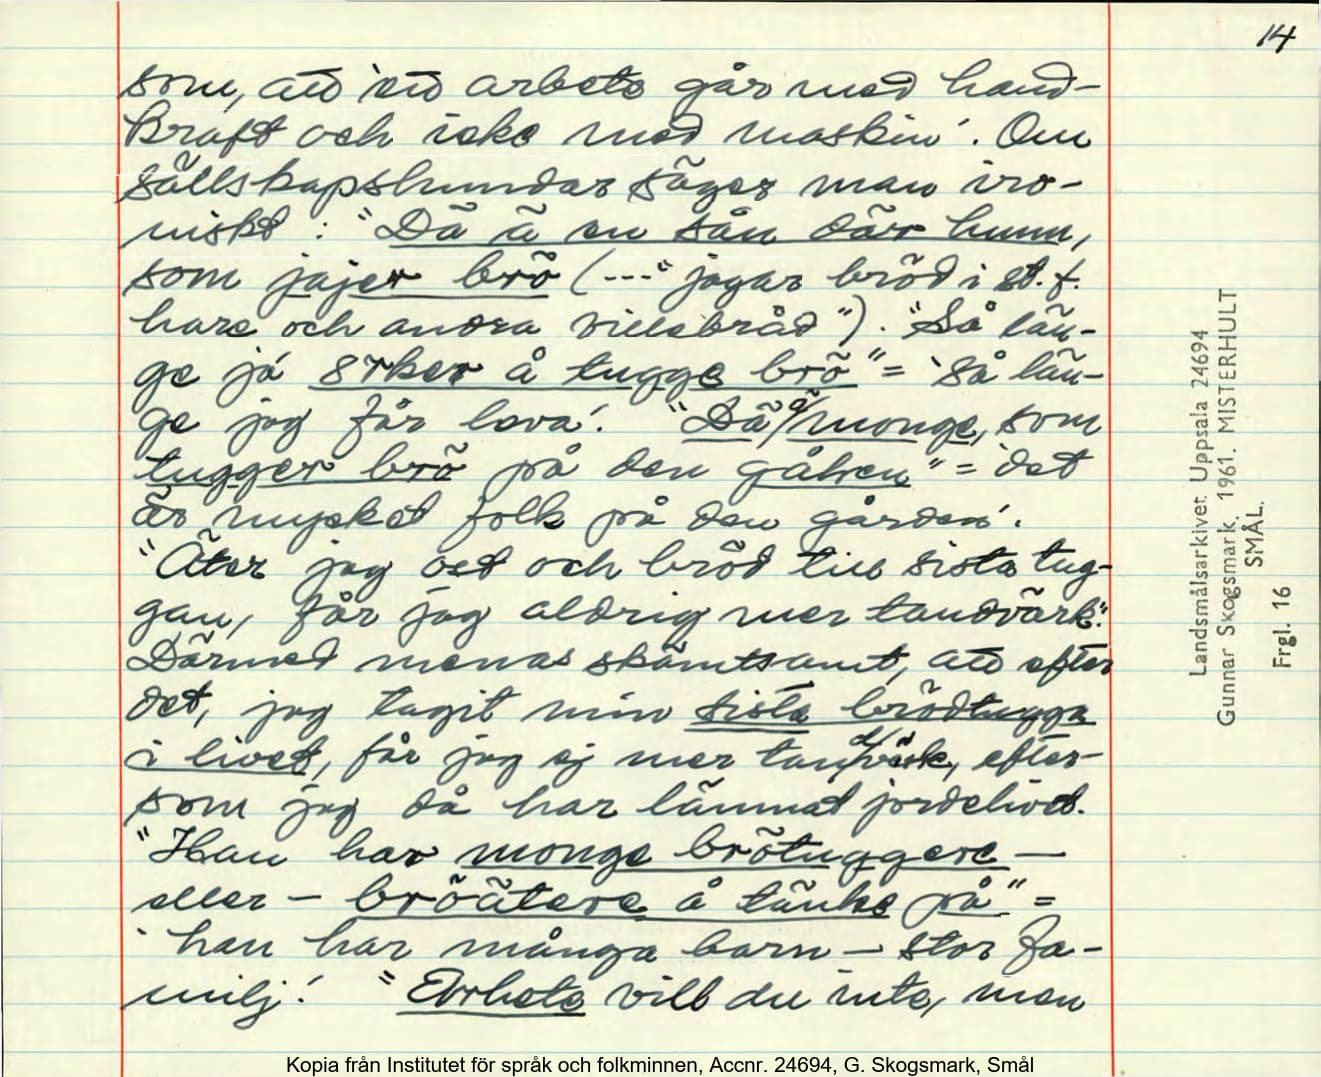 14
som, att 'ett arbete går med hand-
kraft och icke med maskin'. Om
sällskapshundar säger man iro-
niskt: "Dä ä en sån där hunn,
som jajer brö (---" jagar bröd i st. f.
hare och andra villebråd"). "Så län-
ge ja orker å tugge brö" = 'Så län-
ge jag får leva'. "Dä ä monge, som
tugger brö på den gåhen" = 'det
är mycket folk på den gården'.
"Äter jag ost och bröd till sista tug-
gan, får jag aldrig mer tandvärk".
Därmed menas skämtsamt, att efter
det, jag tagit min sista brödtugga
i livet, får jag ej mer tandvärk, efter-
som jag då har lämnat jordelivet.
"Han har monge brötuggere —
eller – bröätere å tänke på" =
'han har många barn — stor fa-
milj'. "Arbete vill du inte, men
Landsmålsarkivet Uppsala 24694
Gunnar Skogsmark. 1961. MISTERHULT
SMÅL.
Frgl. 16
Kopia från Institutet för språk och folkminnen, Accnr. 24694, G. Skogsmark, Smål